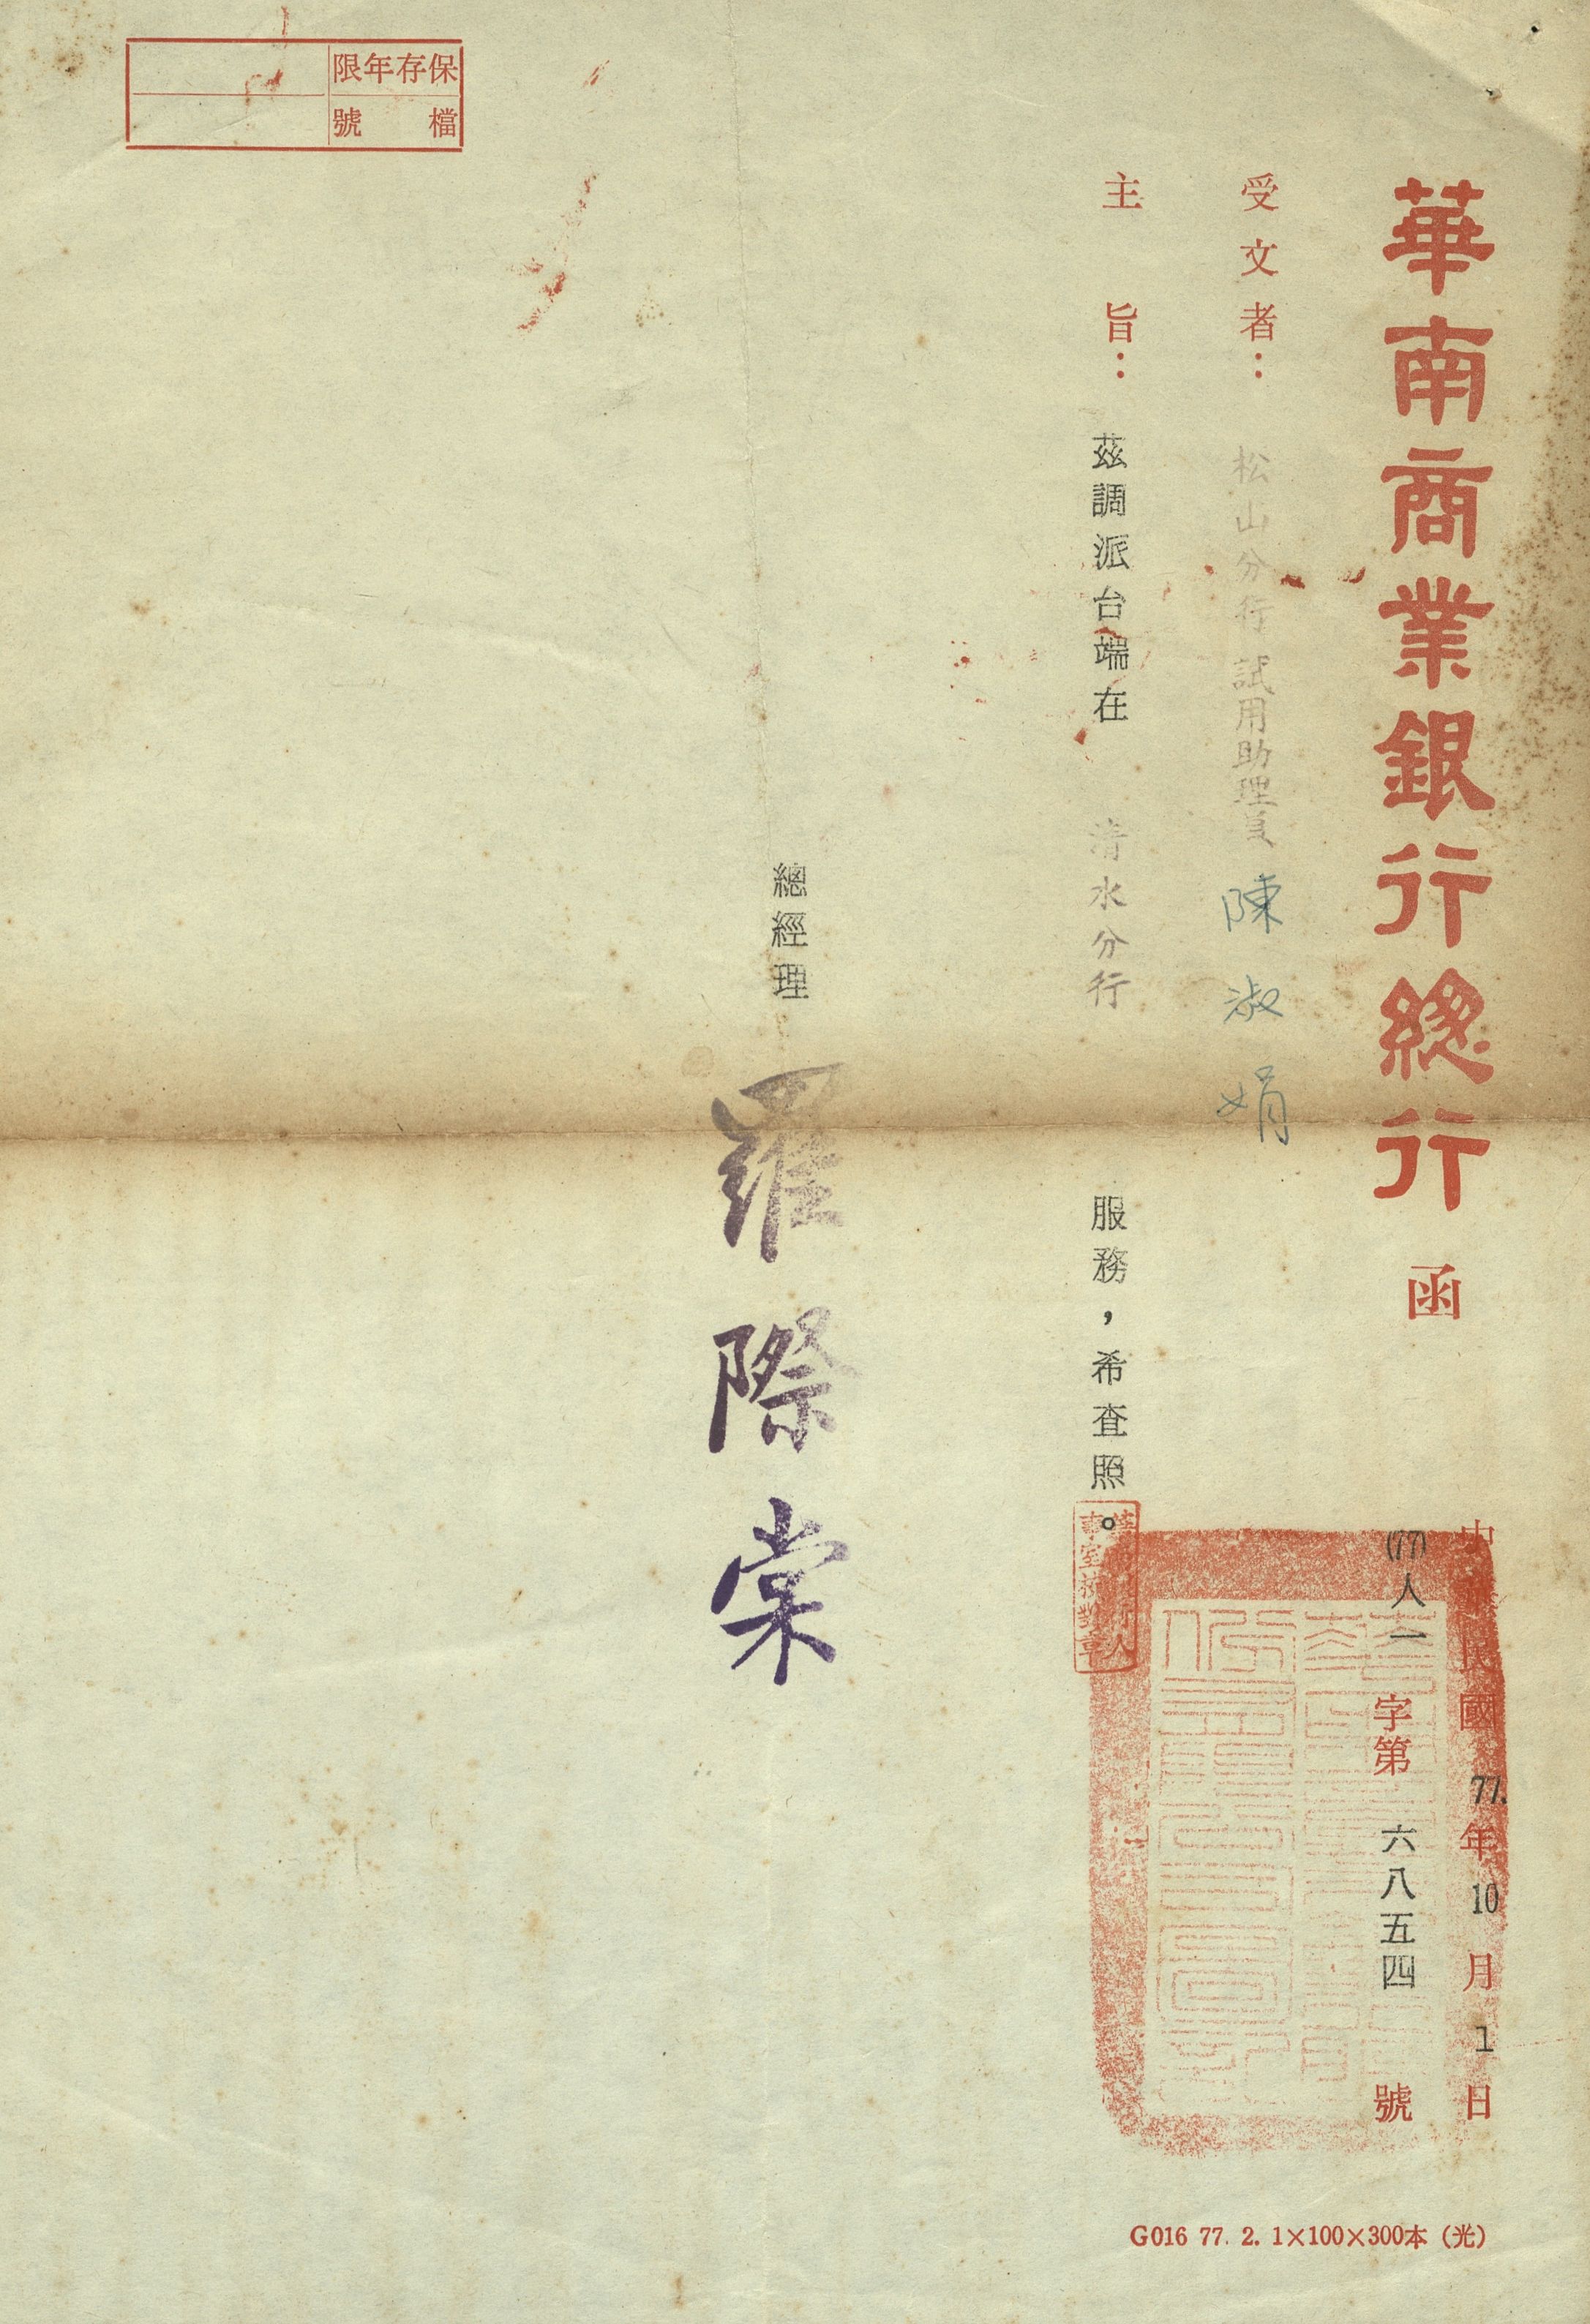 華南商業銀行總行 函
中華民國 77. 年 10 月 1 日
(77) 人一 字第 六八五四 號
受文者： 松山分行 試用助理員 陳淑娟
主旨： 茲調派台端在 清水分行 服務，希查照。
總經理 羅際棠
保存年限
檔號
G016 77. 2. 1×100×300本（光）